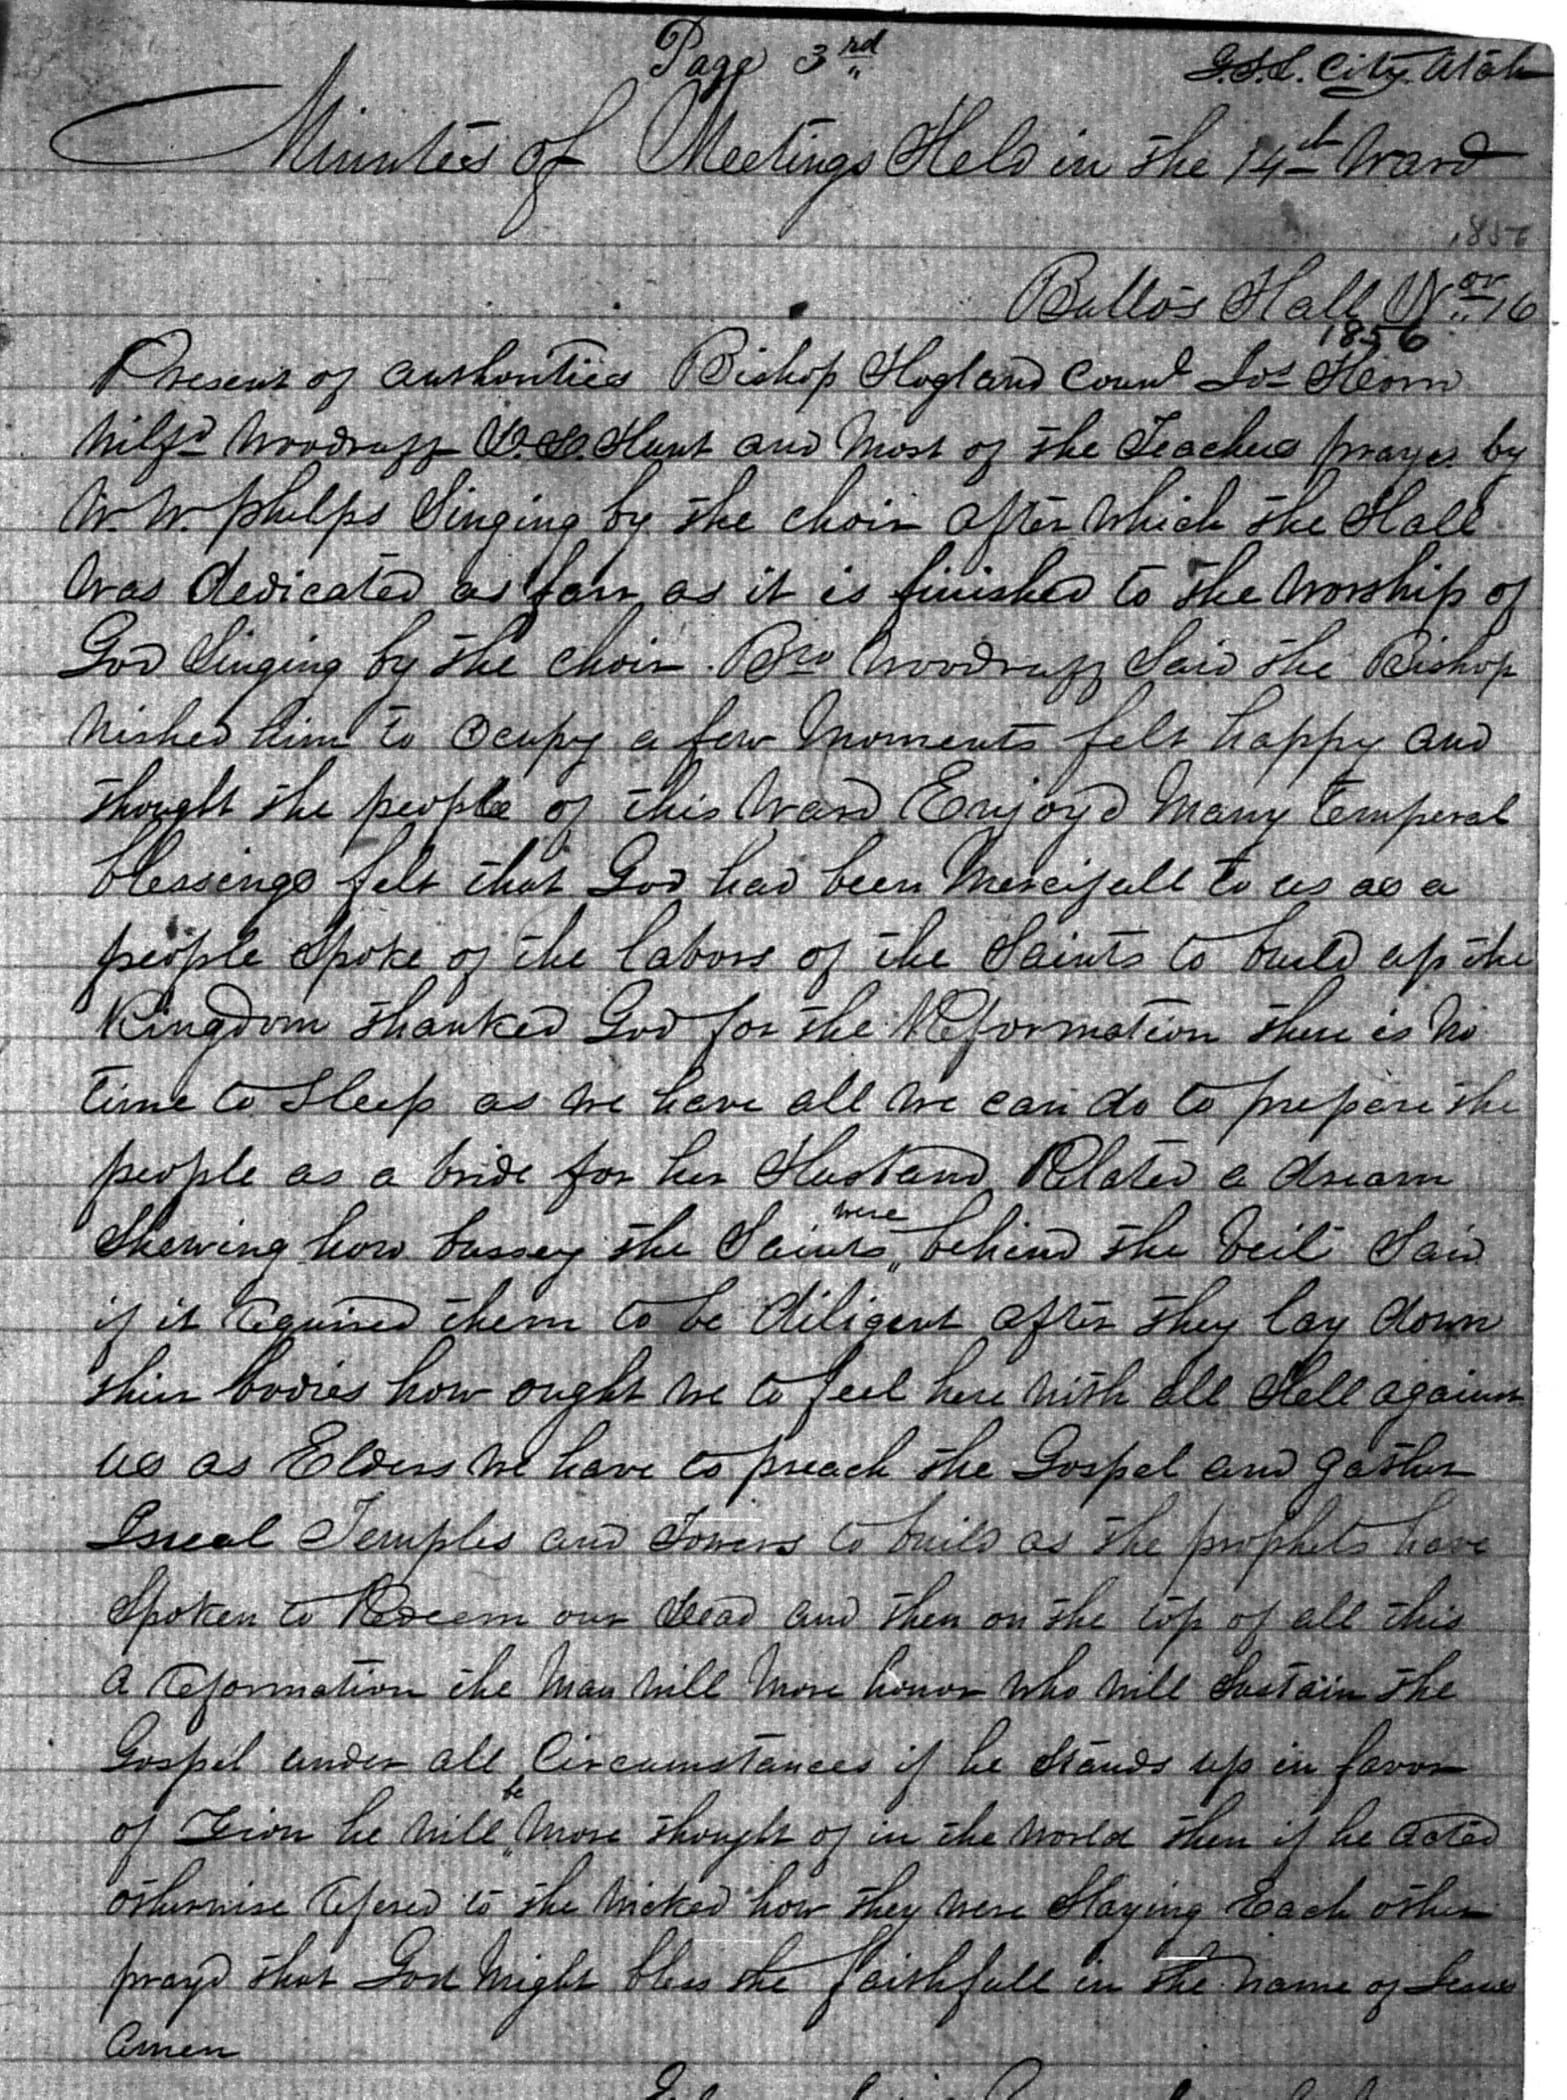 Page 3rd
G.S.L. City Utah
Minutes of Meetings Held in the 14th Ward
1856
Ballo's Hall Nov 16
1856
Present of authorities Bishop Hogland Counl Jos Horn
Wilfd Woodruff D. D. Hunt and Most of the Teachers prayer by
W. W. Phelps Singing by the choir after Which the Hall
Was dedicated as farr as it is finished to the Worship of
God Singing by the choir. Bro Woodruff Said the Bishop
Wished him to Ocupy a few Moments felt happy and
thought the people of this Ward Enjoyd Many temperal
blessings felt that God had been Mercifull to us as a
people Spoke of the labors of the Saints to build up the
Kingdom thanked God for the Reformation there is No
time to Sleep as We have all We can do to prepare the
people as a bride for her Husband Related a dream
Shewing how bussey the Saints were behind the Veil Said
if it required them to be diligent after they lay down
thier bodies how ought We to feel here With all Hell against
us as Elders We have to preach the Gospel and gather
Isreal Temples and Towers to build as the prophets have
Spoken to Redeem our dead and then on the top of all this
a reformation the Man Will More honor Who Will Sustain the
Gospel under all Circumstances if he Stands up in favor
of Zion he Will be More thought of in the World then if he acted
otherwise refered to the Wicked how they Were Slaying Each other
prayd that God Might bless the faithfull in the name of Jesus
Amen